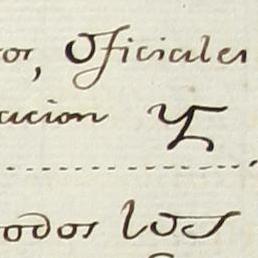 or, Oficiales
acion Y
odos los